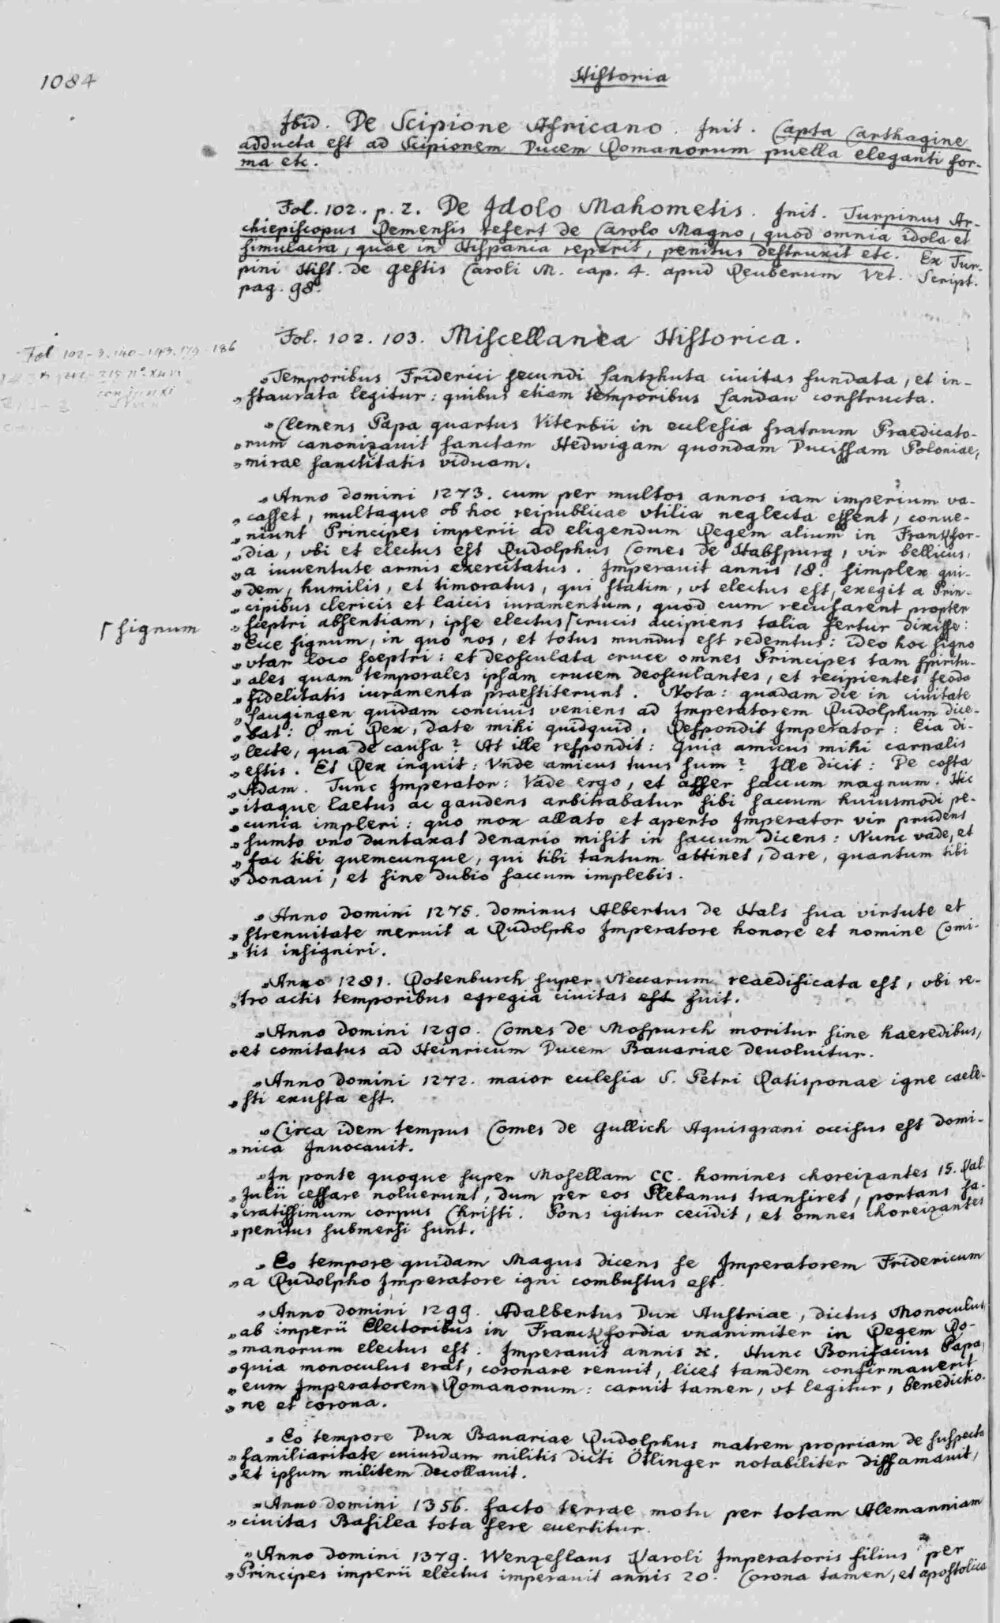 1084
Historia
Ibid. De Scipione Africano. Init. Capta Carthagine
adducta est ad Scipionem Ducem Romanorum puella eleganti for-
ma etc.
Fol. 102. p. 2. De Idolo Mahometis. Init. Turpinus Ar-
chiepiscopus Remensis refert de Carolo Magno, quod omnia idola et
simulacra, quae in Hispania reperit, penitus destruxit etc. Ex Tur-
pini Hist. de gestis Caroli M. cap. 4. apud Reuberum Vet. Script.
pag. 98.
Fol. 102. 103. Miscellanea Historica.
Fol 102-3. 140-143. 179-186
„Temporibus Friderici secundi Lantzhuta civitas fundata, et in-
„staurata legitur: quibus etiam temporibus Landau constructa.
„Clemens Papa quartus Viterbii in ecclesia fratrum Praedicato-
„rum canonizavit sanctam Hedwigam quondam Ducissam Poloniae,
„mirae sanctitatis viduam.
„Anno domini 1273. cum per multos annos iam imperium va-
„casset, multaque ob hoc reipublicae vtilia neglecta essent, conue-
„niunt Principes imperii ad eligendum Regem alium in Franckfor-
„dia, vbi et electus est Rudolphus Comes de Habspurg, vir bellicus,
„a iuuentute armis exercitatus. Imperauit annis 18. simplex qui-
„dem, humilis, et timoratus, qui statim, vt electus est, exegit a Prin-
„cipibus clericis et laicis iuramentum, quod cum recusarent propter
„sceptri absentiam, ipse electus ⌈crucis accipiens talia fertur dixisse:
⌈signum
„Ecce signum, in quo nos, et totus mundus est redemtus: ideo hoc signo
„vtar loco sceptri: et deosculata cruce omnes Principes tam spiritu-
„ales quam temporales ipsam crucem deosculantes, et recipientes feoda
„fidelitatis iuramenta praestiterunt. Nota: quadam die in ciuitate
„Laugingen quidam conciuis veniens ad Imperatorem Rudolphum dice-
„bat: O mi Rex, date mihi quidquid. Respondit Imperator: Eia di-
„lecte, qua de causa? At ille respondit: Quia amicus mihi carnalis
„estis. Et Rex inquit: Vnde amicus tuus sum? Ille dicit: De costa
„Adam. Tunc Imperator: Vade ergo, et affer saccum magnum. Hic
„itaque laetus ac gaudens arbitrabatur sibi saccum huiusmodi pe-
„cunia impleri: quo mox allato et aperto Imperator vir prudens
„sumto vno duntaxat denario misit in saccum dicens: Nunc vade, et
„fac tibi quemcunque, qui tibi tantum attinet, dare, quantum tibi
„donaui, et sine dubio saccum implebis.
„Anno domini 1275. dominus Albertus de Hals sua virtute et
„strenuitate meruit a Rudolpho Imperatore honore et nomine Comi-
„tis insigniri.
„Anno 1281. Rotenburch super Neccarum reaedificata est, vbi re-
„tro actis temporibus egregia civitas est fuit.
„Anno domini 1290. Comes de Mospurch moritur sine haeredibus,
„et comitatus ad Heinricum Ducem Bauariae deuoluitur.
„Anno domini 1272. maior ecclesia S. Petri Ratisponae igne caele-
„sti exusta est.
„Circa idem tempus Comes de Gullich Aquisgrani occisus est domi-
„nica Inuocauit.
„In ponte quoque super Mosellam CC. homines choreizantes 15. Kal
„Julii cessare noluerunt, dum per eos Plebanus transiret, portans sa-
„cratissimum corpus Christi. Pons igitur cecidit, et omnes choreizantes
„penitus submersi sunt.
„Eo tempore quidam Magus dicens se Imperatorem Fridericum
„a Rudolpho Imperatore igni combustus est.
„Anno domini 1299. Adalbertus Dux Austriae, dictus Monoculus,
„ab imperii Electoribus in Franckfordia vnanimiter in Regem Ro-
„manorum electus est. Imperauit annis x. Hunc Bonifacius Papa,
„quia monoculus erat, coronare renuit, licet tamdem confirmauerit
„eum Imperatorem Romanorum: caruit tamen, vt legitur, benedictio-
„ne et corona.
„Eo tempore Dux Bauariae Rudolphus matrem propriam de suspecta
„familiaritate cuiusdam militis dicti Ötlinger notabiliter diffamauit,
„et ipsum militem decollauit.
„Anno domini 1356. facto terrae motu per totam Alemanniam
„ciuitas Basilea tota fere euertitur.
„Anno domini 1379. Wenzeslaus Karoli Imperatoris filius per
„Principes imperii electus imperauit annis 20. Corona tamen, et apostolica